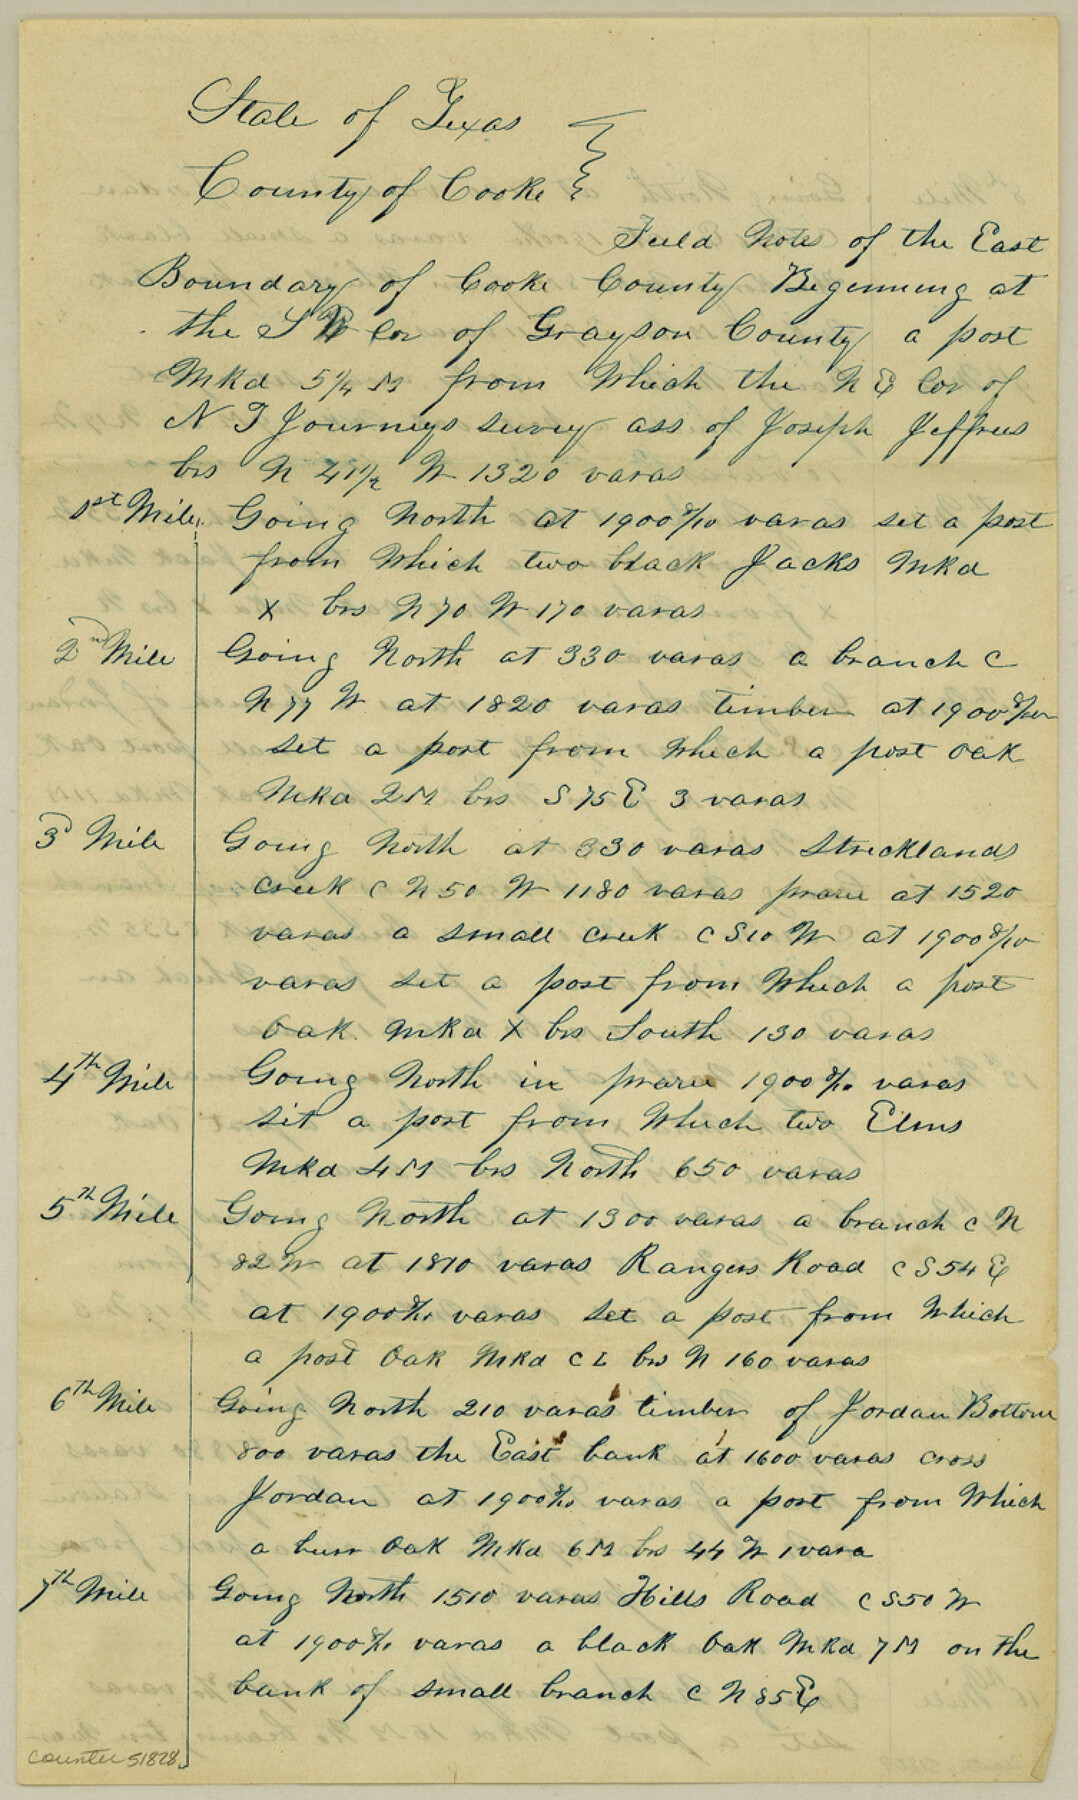 State of Texas
County of Cooke
Field Notes of the East
Boundary of Cooke County Beginning at
the S W Cor of Grayson County a post
Mkd 5 1/4 M from Which the N E Cor of
N T Journeys survey ass of Joseph Jeffries
brs N 41 1/2 W 1320 varas
1st Mile Going North at 1900 8/10 varas set a post
from Which two black Jacks Mkd
X brs N 70 W 170 varas
2nd Mile Going North at 330 varas a branch C
N 77 W at 1820 varas timber at 1900 8/10
set a post from Which a post Oak
Mkd 2 M brs S 75 E 3 varas
3d Mile Going North at 330 varas Stricklands
creek C N 50 W 1180 varas prarie at 1520
varas a small creek C S 10 W at 1900 8/10
varas set a post from Which a post
Oak Mkd X brs South 130 varas
4th Mile Going North in prarie 1900 8/10 varas
set a post from Which two Elms
Mkd 4 M brs North 650 varas
5th Mile Going North at 1300 varas a branch C N
82 W at 1870 varas Rangers Road C S 54 E
at 1900 8/10 varas set a post from Which
a post Oak Mkd C L brs N 160 varas
6th Mile Going North 210 varas timber of Jordan Bottom
800 varas the East bank at 1600 varas cross
Jordan at 1900 8/10 varas a post from Which
a burr Oak Mkd 6 M brs 44 W 1 vara
7th Mile Going North 1510 varas Hills Road C S 50 W
at 1900 8/10 varas a black Oak Mkd 7 M on the
bank of small branch C N 85 E
counter 51828